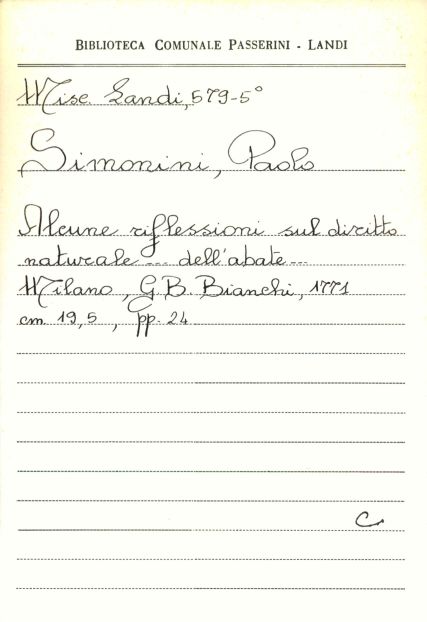 BIBLIOTECA COMUNALE PASSERINI - LANDI
Misc. Landi, 579-5°
Simonini, Paolo
Alcune riflessioni sul diritto
naturale ... dell'abate ...
Milano, G.B. Bianchi, 1771
cm. 19,5, pp. 24
C